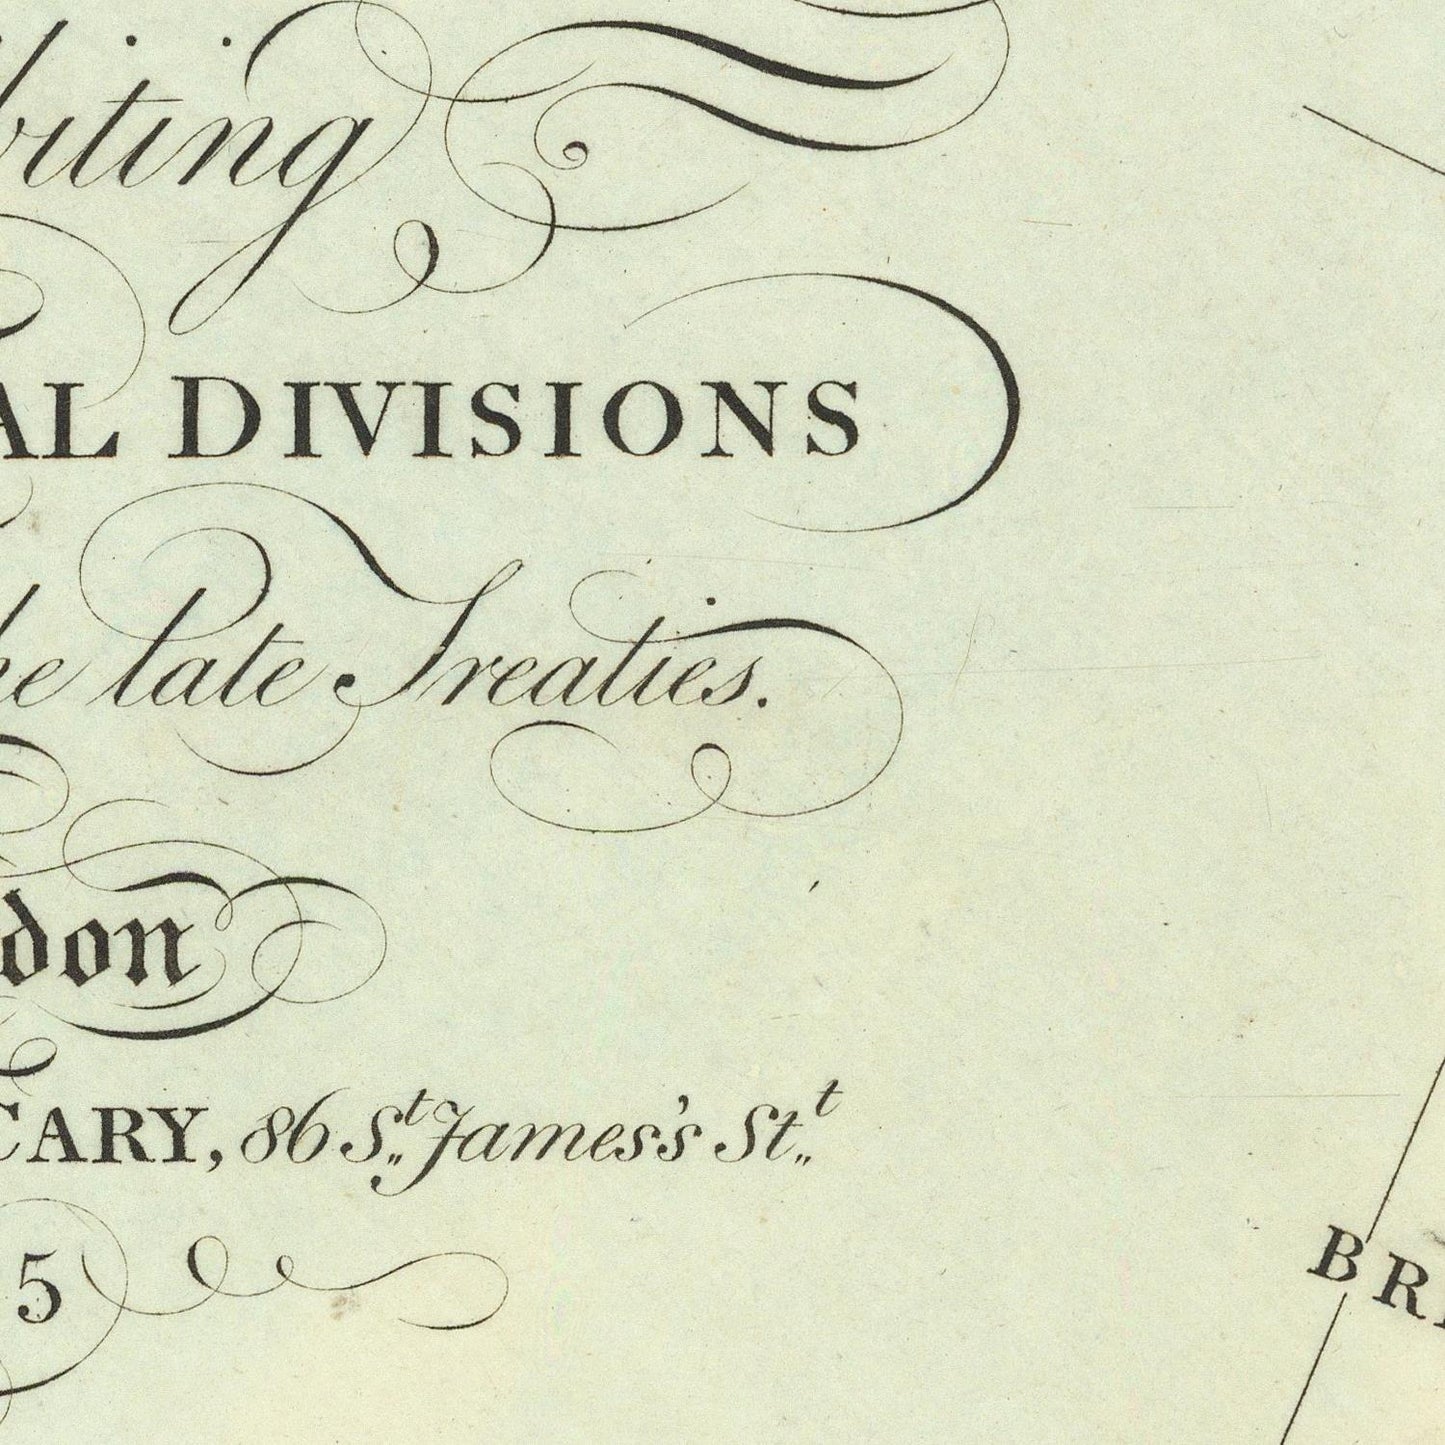 biting
AL DIVISIONS
he late Treaties.
don
CARY, 86 St James's Stt
5
BRI